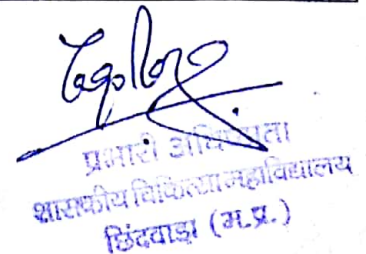 प्रभारी अधिष्ठाता
शासकीय चिकित्सा महाविद्यालय
छिंदवाड़ा (म.प्र.)